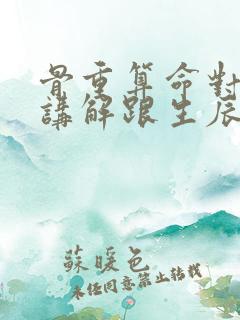 骨重算命對
講解跟生辰
蘇暖色
未經同意禁止轉載